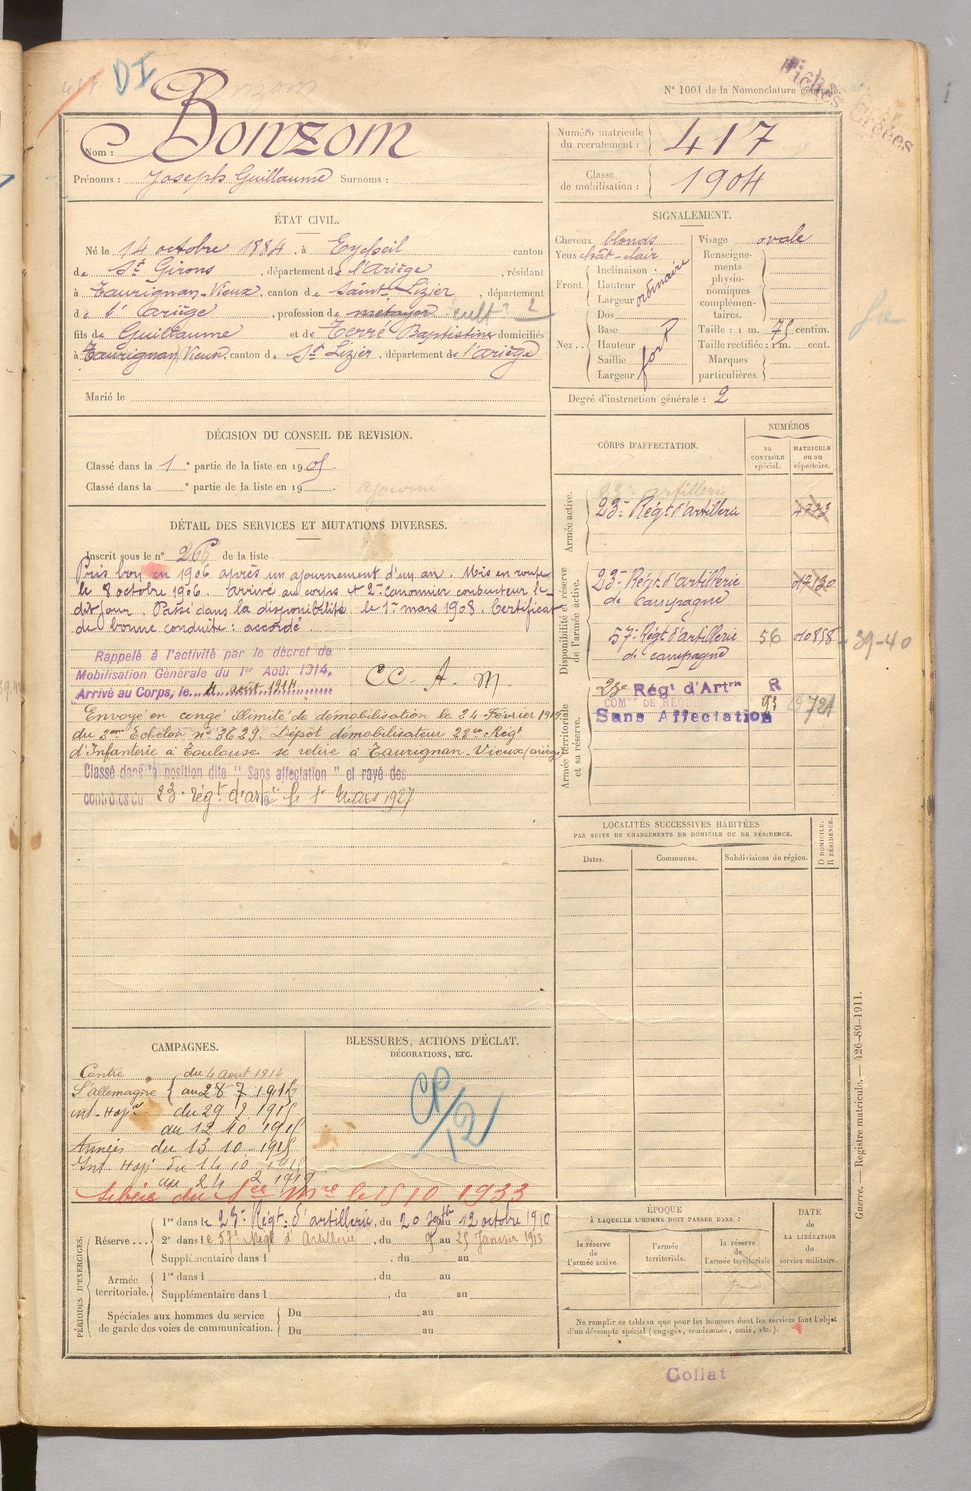 DI
N° 1001 de la Nomenclature générale.
Fiches créées
Nom : Bonzom
Prénoms : Joseph Guillaume Surnoms :
Numéro matricule du recrutement : 417
Classe de mobilisation : 1904
ÉTAT CIVIL.
Né le 14 octobre 1884, à Eycheil canton
de St Girons, département de l'Ariège, résidant
à Taurignan-Vieux, canton de Saint Lizier, département
de l'Ariège, profession de métayer cult r
fils de Guillaume et de Terré Baptistine domiciliés
à Taurignan Vieux canton de St Lizier, département de l'Ariège
Marié le
SIGNALEMENT.
Cheveux blonds
Yeux chat-clair
Front Inclinaison :
Hauteur
Largeur ordinaire
Nez .. Dos
Base
Hauteur
Saillie
Largeur fort
Visage ovale
Renseignements physionomiques complémentaires.
Taille : 1 m. 75 centim.
Taille rectifiée : 1 m. cent.
Marques particulières.
Degré d'instruction générale : 2
DÉCISION DU CONSEIL DE REVISION.
Classé dans la 1 e partie de la liste en 1905.
Classé dans la e partie de la liste en 19
ajourné
DÉTAIL DES SERVICES ET MUTATIONS DIVERSES.
Inscrit sous le n° 266 de la liste
Pris bon en 1906 après un ajournement d'un an. Mis en route
le 8 octobre 1906. arrivé au corps et 2e canonnier conducteur le
dit jour. Passé dans la disponibilité le 1er mars 1908. Certificat
de bonne conduite : accordé.
Rappelé à l'activité par le décret de
Mobilisation Générale du 1er Août 1914,
Arrivé au Corps, le 4 août 1914
CC. A. M.
Envoyé en congé illimité de démobilisation le 24 Février 1919
du 3eme Echelon n° 3629. Dépôt démobilisateur 23eme Régt
d'Infanterie à Toulouse se retire à Taurignan-Vieux (ariège)
Classé dans la position dite "Sans affectation" et rayé des
contrôles du 23e régt d'artie le 1er Mars 1927
CORPS D'AFFECTATION.
NUMÉROS
au CONTRÔLE spécial.
MATRICULE ou au répertoire.
Armée active.
23e artillerie
23e Régt d'artillerie
Disponibilité et réserve de l'armée active.
23e Régt d'Artillerie
de campagne
57e Régt d'Artillerie 56
de campagne
39-40
Armée territoriale et sa réserve.
23e Régt d'Artrie R
93
Sans Affectation
LOCALITÉS SUCCESSIVES HABITÉES
PAR SUITE DE CHANGEMENTS DE DOMICILE OU DE RÉSIDENCE.
Dates. Communes. Subdivisions de région.
D DOMICILE. R RÉSIDENCE.
CAMPAGNES.
Contre du 4 août 1914
l'allemagne au 28 7 1915
int. Hopal du 29 7 1915
au 12 10 1915
Armées du 13 10 1915
Int. Hop du 14 10 1915
au 24 2 1919
Libéré du See Mre le 15 10 1933
BLESSURES, ACTIONS D'ÉCLAT,
DÉCORATIONS, ETC.
CP/12
PÉRIODES D'EXERCICES.
Réserve... 1re dans le 23e Régt d'artillerie, du 20 septbre au 12 octobre 1910
2e dans le 57e Régt d'Artillerie, du 9 au 25 Janvier 1913
Supplémentaire dans l , du au
Armée territoriale. 1re dans l , du au
Supplémentaire dans l , du au
Spéciales aux hommes du service de garde des voies de communication. Du au
Du au
ÉPOQUE
À LAQUELLE L'HOMME DOIT PASSER DANS :
la réserve de l'armée active.
l'armée territoriale.
la réserve de l'armée territoriale
DATE de LA LIBÉRATION du service militaire.
Ne remplir ce tableau que pour les hommes dont les services font l'objet
d'un décompte spécial (engagés, condamnés, omis, etc.).
Guerre. — Registre matricule. — 426-89-1911.
Collat